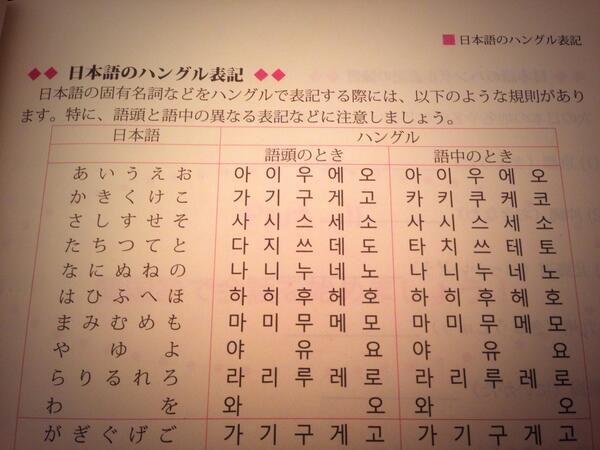 日本語のハングル表記
◆◆ 日本語のハングル表記 ◆◆
日本語の固有名詞などをハングルで表記する際には、以下のような規則があり
ます。特に、語頭と語中の異なる表記などに注意しましょう。
日本語 ハングル
語頭のとき 語中のとき
あ い う え お 아 이 우 에 오 아 이 우 에 오
か き く け こ 가 기 구 게 고 카 키 쿠 케 코
さ し す せ そ 사 시 스 세 소 사 시 스 세 소
た ち つ て と 다 지 쓰 데 도 타 치 쓰 테 토
な に ぬ ね の 나 니 누 네 노 나 니 누 네 노
は ひ ふ へ ほ 하 히 후 헤 호 하 히 후 헤 호
ま み む め も 마 미 무 메 모 마 미 무 메 모
や ゆ よ 야 유 요 야 유 요
ら り る れ ろ 라 리 루 레 로 라 리 루 레 로
わ を 와 오 와 오
が ぎ ぐ げ ご 가 기 구 게 고 가 기 구 게 고